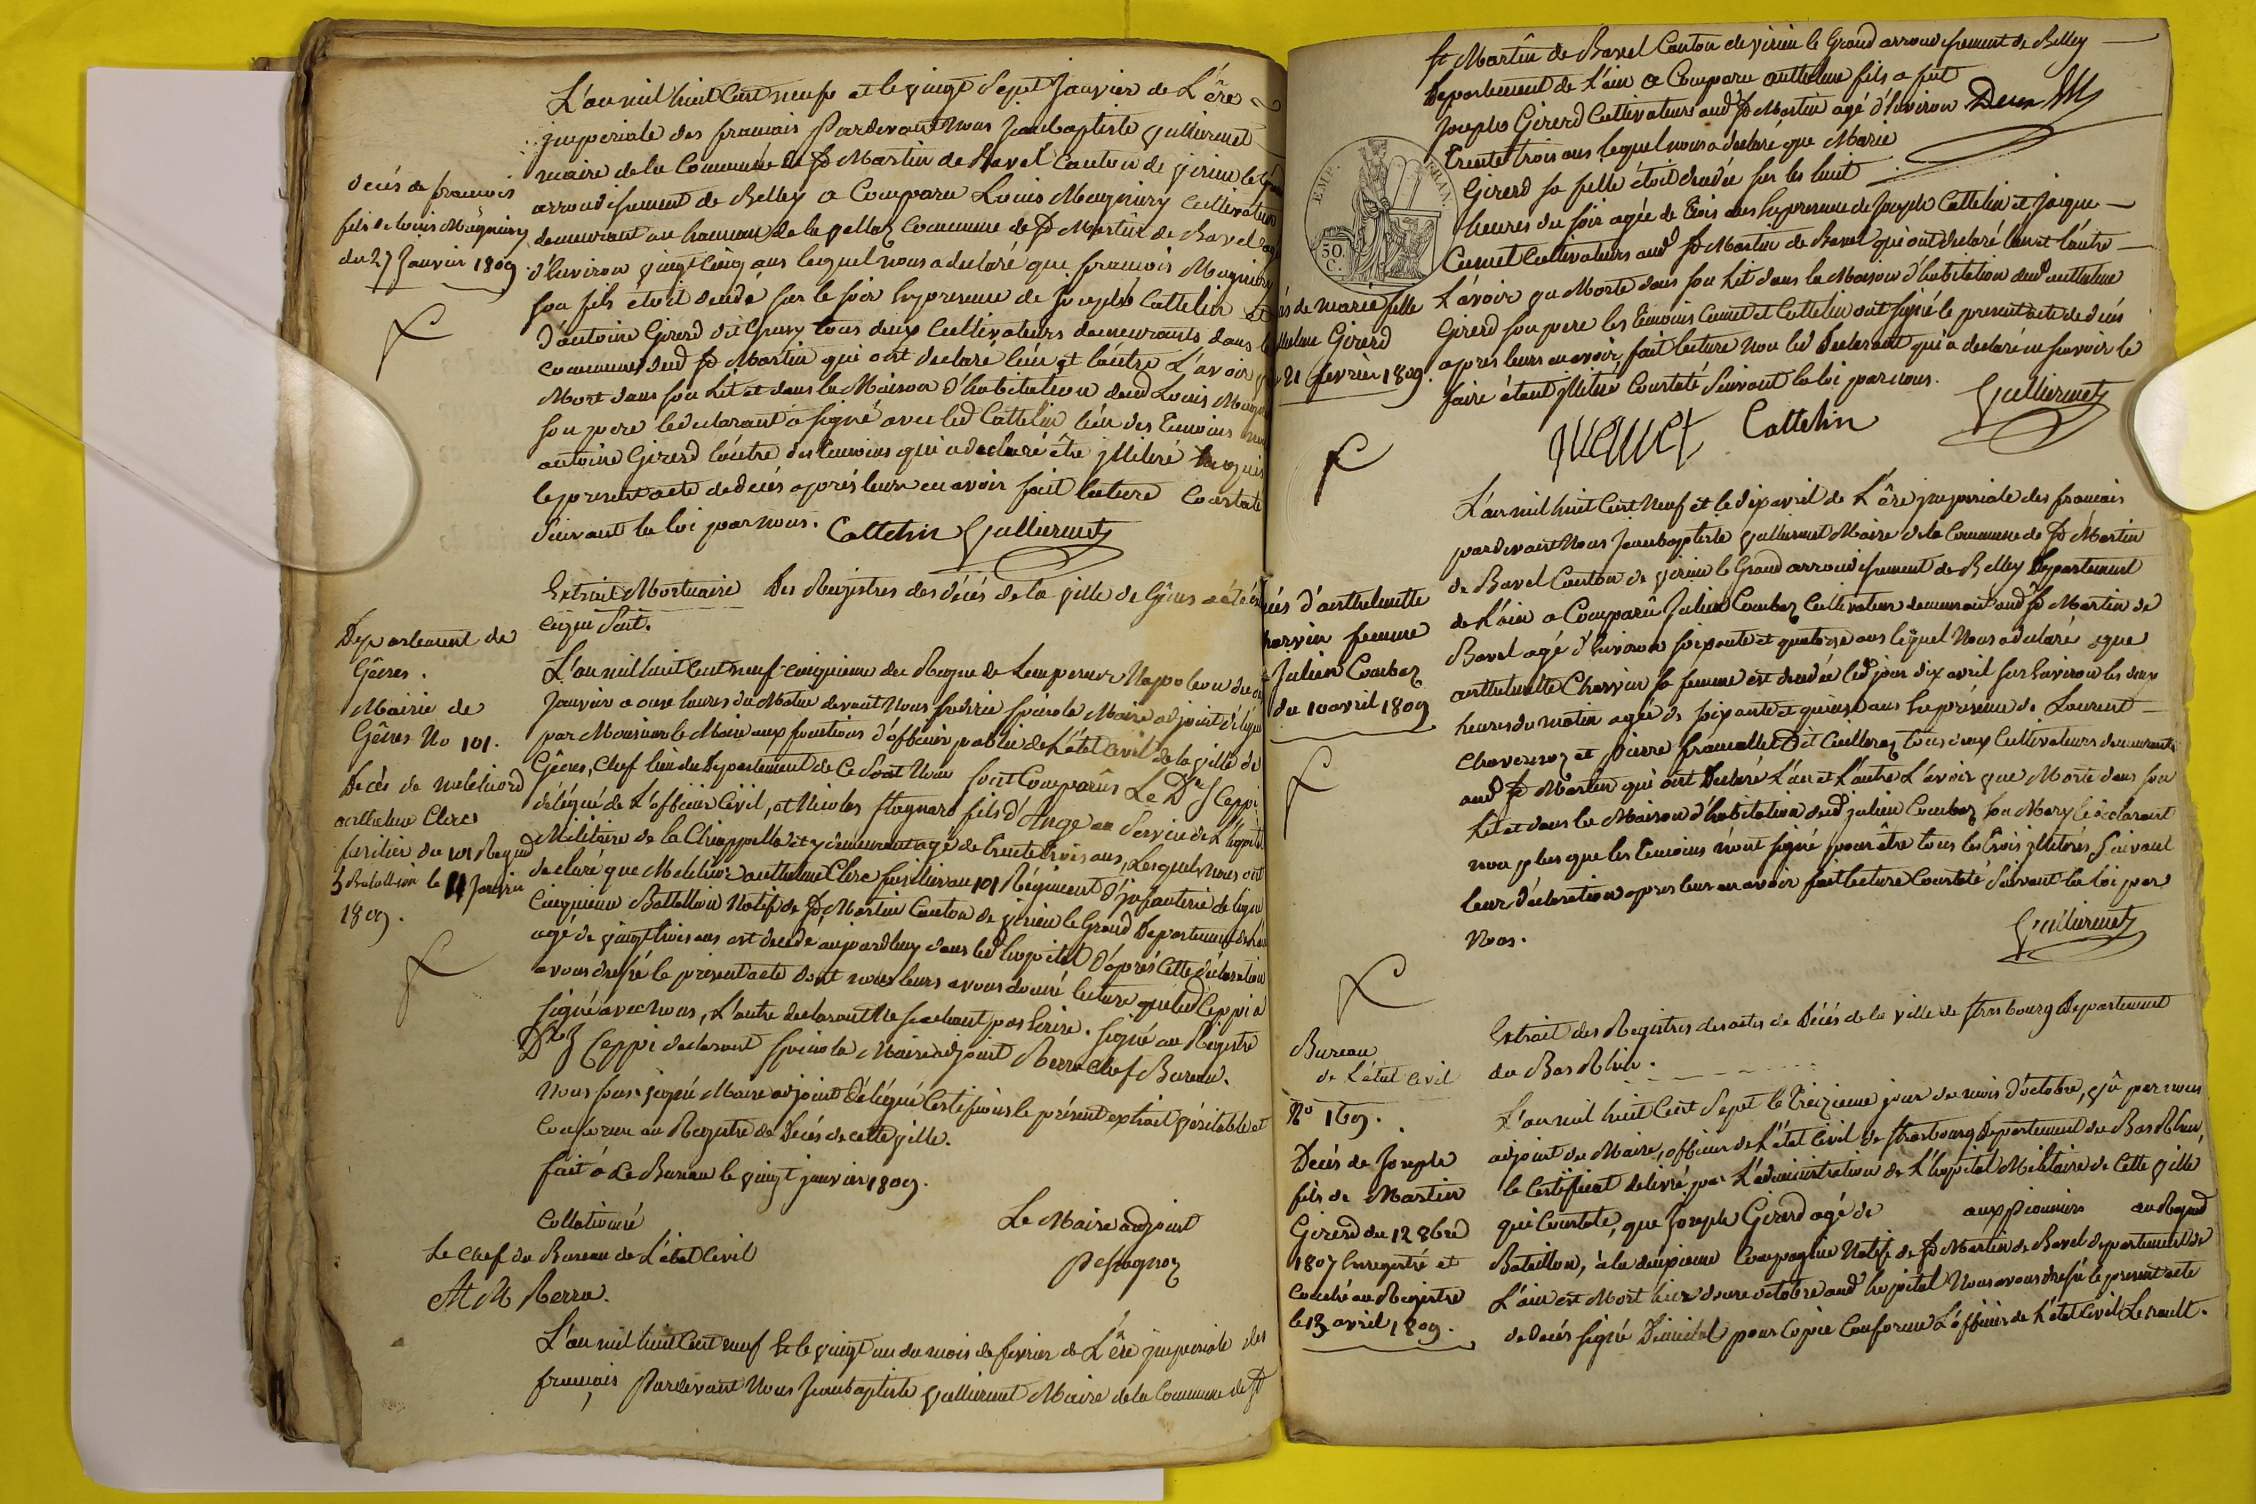 L'an mil huit Cent neufs et le vingt Sept Janvier de L'ère
jmperiale des francais Pardevant Nous Jeanbaptiste Vulliermet
maire de la Commune de St Martin de Bavel Canton de virieu le Grand
arrondissement de Belley a Comparu Louis Mugniery Cultivateur
demeurant au hameau de la vellaz Commune de St Martin de Bavel
d'Environ vingt Cinq ans lequel nous a declaré que francois Mugniery
son fils étoit decedé sur le soir En presence de Joseph Cattelin et
d'antoine Girerd dit Chury tous deux Cultivateurs demeurants dans la
commune dud St Martin qui ont declaré l'un et l'autre L'avoir vu
Mort dans son Lit et dans la Maison d'habitation dud Louis
son pere le declarant a signé avec led Cattelin l'un des Temoins
antoine Girerd l'autre des temoins qui a declaré être jlliteré
le present acte de décès après leurs en avoir fait lecture Constaté
suivant la loi par nous. Cattelin Vulliermet
decés de francois
fils de louis Mugniery
du 27 Janvier 1809
Extrait Mortuaire Des Registres des décés de la ville de Gênes a été
ce qui Suit.
Departement de
Gênes.
Mairie de
Gênes No 101.
Décès de melchiord
anthelme Clerc
fusilier du 101 Regimd
5 Batallion le 11 Janvier
1809.
L'an mil huit cent neuf cinquieme du Regne de Lempereur Napoleon du
Janvier a onze heures du Matin devant Nous fredric spinola Maire adjoint délégué
par Monsieur le Maire aux fonctions d'officier public de L'état Civil de la ville de
Gênes, Chef lieu du Departement de Ce Nom Sont Comparûs Le Dr Ceppi
délégué de L'officier Civil, et Nicolas Stagnaro fils d'Ange au Service de L'hopital
Militaire de la Chiappella et y demeurant agé de trente trois ans, Lesquels nous ont
declaré que Melchior anthelme Clerc fusilier au 101 Régiment D'jnfanterie de ligne
Cinquieme Battallion Natif de St Martin Canton de virieu le Grand Departement de L'ain
agé de vingt trois ans est decedé aujourdhuy dans led hopital D'après Cette déclaration
avons dressé le present acte dont nous leurs avons donné lecture quiled Ceppi a
signé avec nous, L'autre declarant Ne sachant pas Ecrire. Signé au Registre
Ceppi declarant spinola Maire adjoint Rerra Chef Bureau.
Nous soussigné Maire adjoint Délégué Certifions le présent extrait véritable et
Conforme au Registre de Décès de cette ville.
fait à Le Bureau le vingt janvier 1809.
Collationné
Le Chef du Bureau de L'état Civil
Rerra.
Le Maire adjoint
L'an mil huit Cent neuf & le vingt un du mois de fevrier de L'ère jmperiale des
francais Pardevant Nous Jeanbaptiste Vulliermet Maire de la Commune de St
St Martin de Bavel Canton de virieu le Grand arrondissement de Belley
Departement de L'ain a Comparu anthelme fils a feüt
Joseph Girerd Cultivateur aud St Martin agé d'Environ
Trente trois ans lequel nous a declaré que Marie
Girerd sa fille étoit decedée sur les huit
heures du soir agée de trois ans En presence de Joseph Cattelin et Jacque
Cumet Cultivateurs aud St Martin de Bavel qui ont declaré l'un et l'autre
L'avoir vu Morte dans son Lit dans la Maison d'habitation dud anthelme
Girerd son pere les temoins Cumet et Cattelin ont signé le present acte de decés
apres leurs en avoir fait lecture Non led Declarant qui a declaré ne savoir le
faire étant jlliteré Constaté Suivant la loi par nous. Vulliermet
Cattelin
EMP. FRAN.
50
C.
de marie fille
Girerd
21 fevrier 1809.
L'an mil huit Cent Neuf et le dix avril de L'ère jmperiale des francais
pardevant Nous Jeanbaptiste Vulliermet Maire de la Commune de St Martin
de Bavel Canton de virieu le Grand arrondissement de Belley Departement
de L'ain a Comparû Julien Combaz Cultivateur demeurant aud St Martin de
Bavel agé d'Environ soixante et quatorze ans lequel Nous a declaré que
anthelmette Charvin sa femme est decedée led jour dix avril sur Environ les deux
heures du matin agée de soixante et quinze ans En présence de Laurent
et Pierre francallet Dit Cuilleraz tous deux Cultivateurs demeurants
aud St Martin qui ont Declaré L'un et L'autre L'avoir vue Morte dans son
Lit et dans la Maison d'habitation dud julien Combaz son Mary le declarant
non plus que les temoins n'ont signé pour être tous les trois jlliterés Suivant
leur déclaration apres leur en avoir fait lecture Constaté Suivant la loi par
Nous.
Vulliermet
d'anthelmette
femme
Julien Combaz
du 10 avril 1809
Extrait des Registres des actes de Décés de la ville de Strasbourg Departement
du Bas Rhin.
Bureau
de L'état Civil
No 169.
Decés de Joseph
fils de Martin
Girerd du 12 8bre
1807 Enregistré et
couché au Registre
le 13 avril, 1809.
L'an mil huit Cent Sept le treizieme jour du mois d'octobre, vû par nous
adjoint du Maire, officier de L'état Civil de Strasbourg Departement du Bas Rhin,
le Certificat delivré par L'administration de L'hopital Militaire de Cette ville
qui Constate, que Joseph Girerd agé de aux pionniers au
Bataillon, à la deuxieme Compagnie Natif de St Martin de Bavel departement de
L'ain est Mort hier douze octobre aud hopital Nous avons dressé le present acte
de decés signé Dimidal pour Copie Conforme L'officier de L'état Civil Levrault.